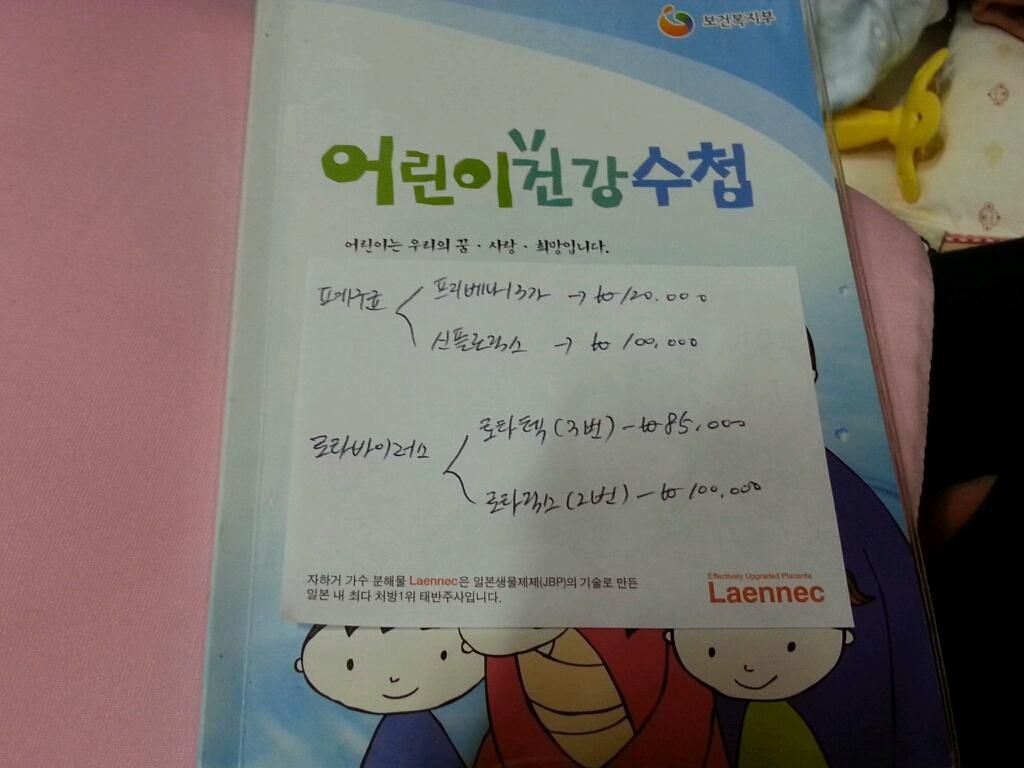 보건복지부
어린이건강수첩
어린이는 우리의 꿈 · 사랑 · 희망입니다.
폐구균
프리베나13가 → ₩120.000
신플로릭스 → ₩100,000
로타바이러스
로타텍(3번) - ₩85,000
로타릭스(2번) - ₩100,000
자하거 가수 분해물 Laennec은 일본생물제제(JBP)의 기술로 만든
일본 내 최다 처방1위 태반주사입니다.
Effectively Upgraded Placenta
Laennec